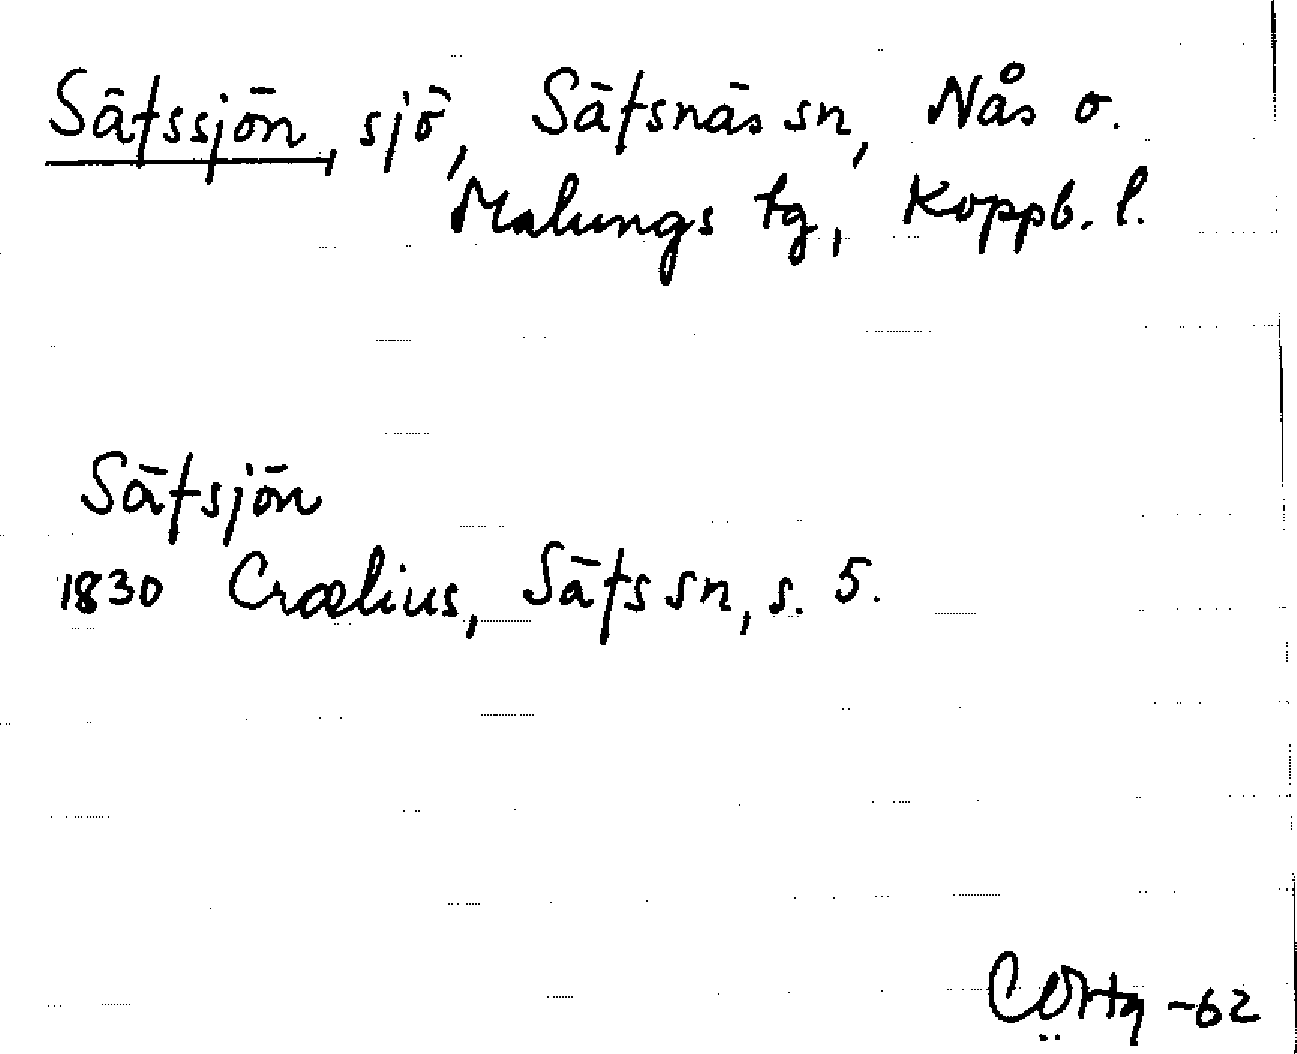 Säfssjön, sjö, Säfsnäs sn, Nås o.
Malungs tg, Koppb. l.
Säfsjön
1830 Crælius, Säfs sn, s. 5.
-62